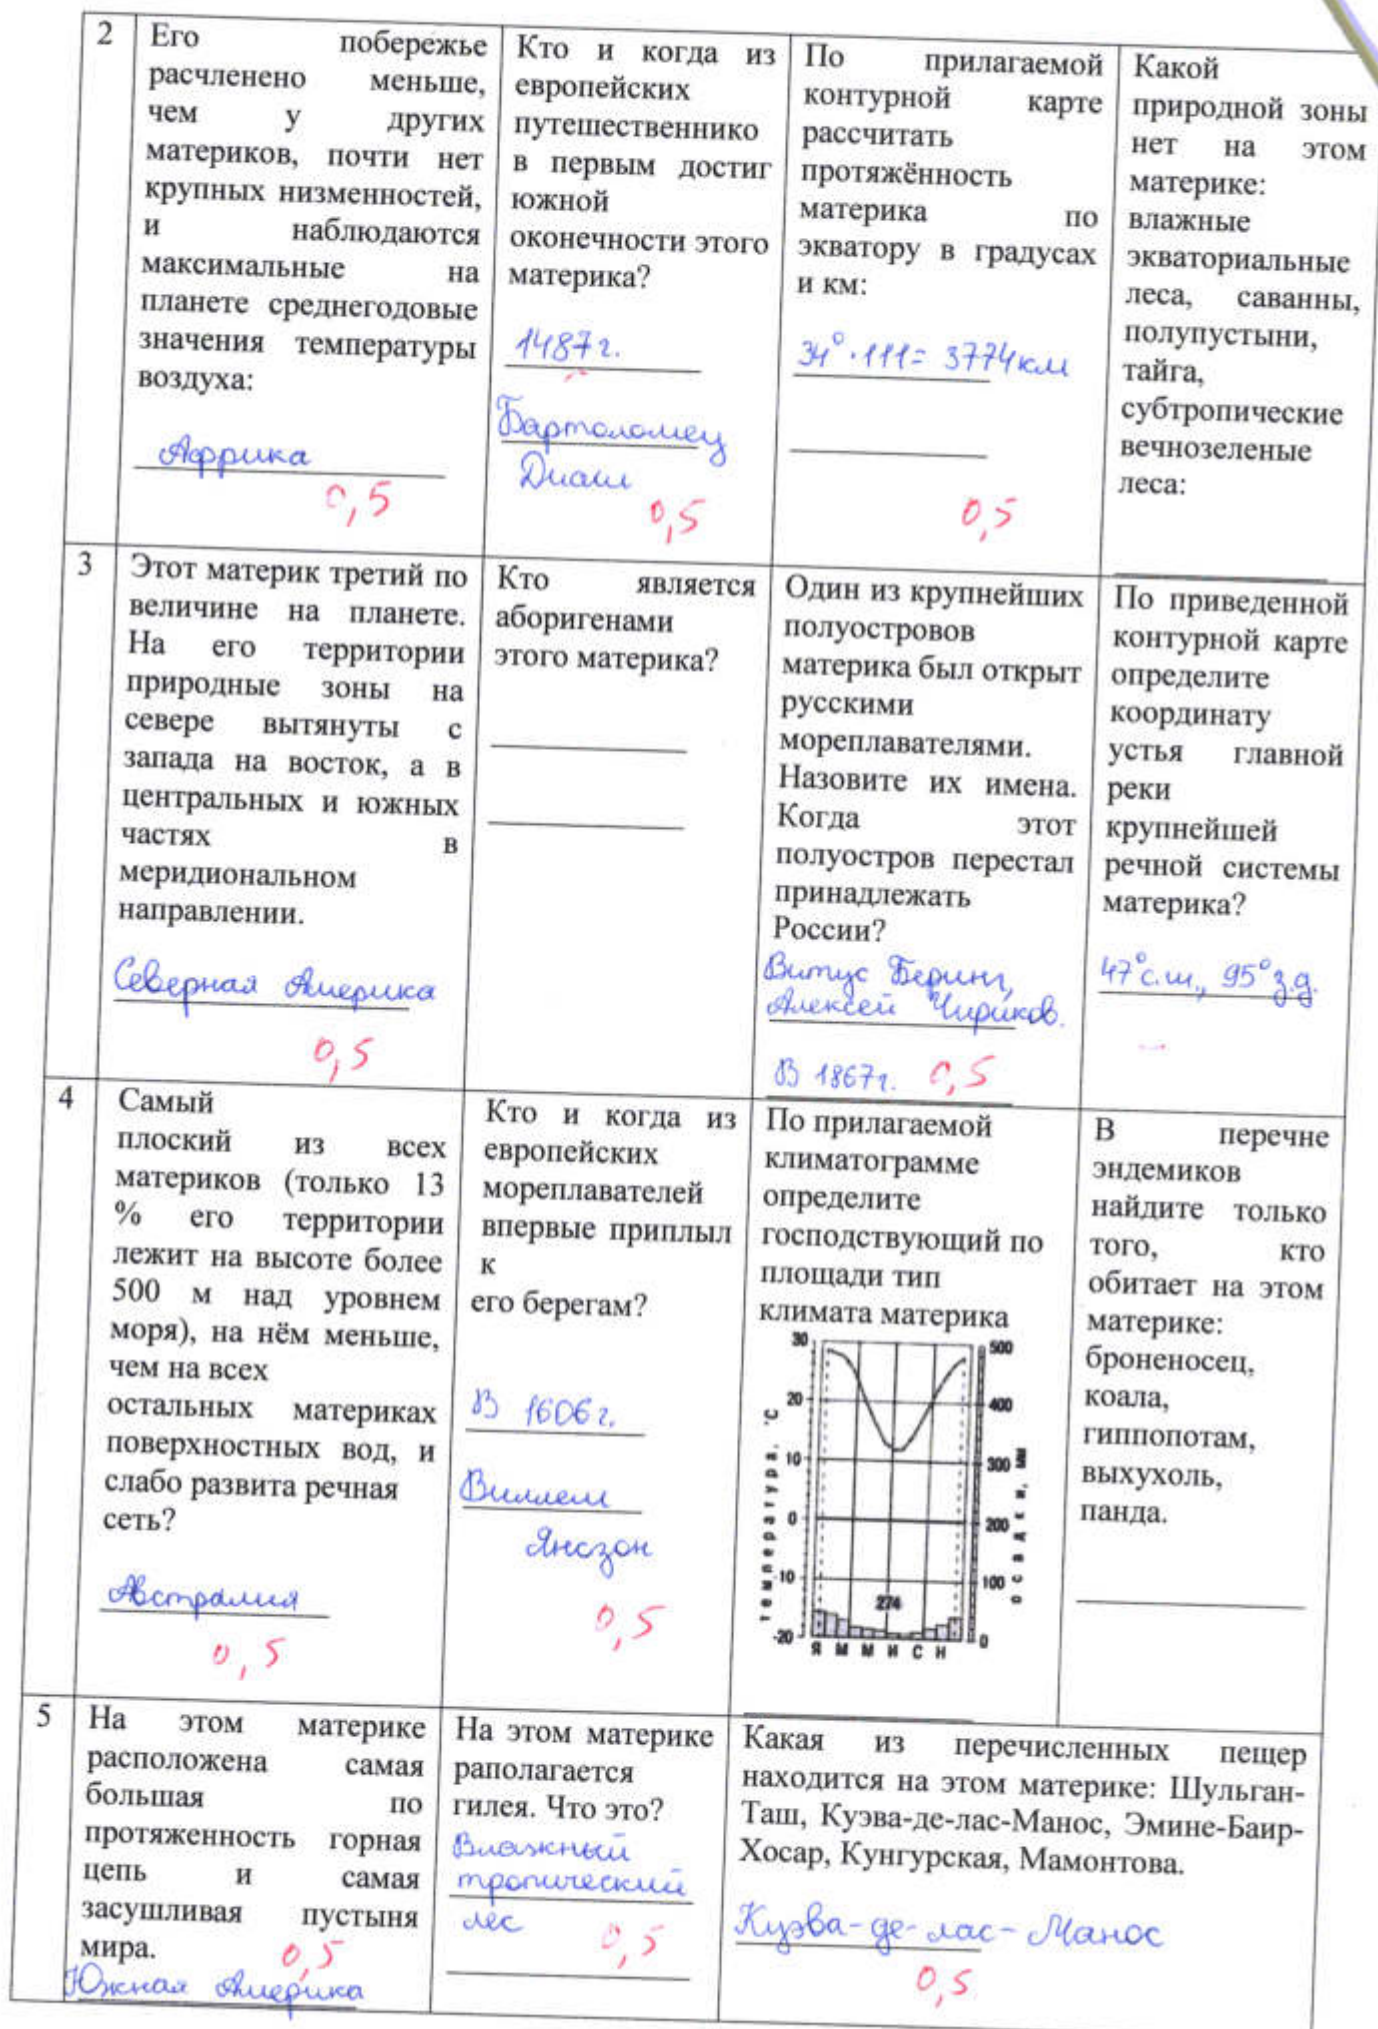 2
Его побережье
расчленено меньше,
чем у других
материков, почти нет
крупных низменностей,
и наблюдаются
максимальные на
планете среднегодовые
значения температуры
воздуха:
Африка
0,5
Кто и когда из
европейских
путешественнико
в первым достиг
южной
оконечности этого
материка?
1487г.
Бартоломеу
Диаш
0,5
По прилагаемой
контурной карте
рассчитать
протяжённость
материка по
экватору в градусах
и км:
34°·111= 3774км
0,5
Какой
природной зоны
нет на этом
материке:
влажные
экваториальные
леса, саванны,
полупустыни,
тайга,
субтропические
вечнозеленые
леса:
3
Этот материк третий по
величине на планете.
На его территории
природные зоны на
севере вытянуты с
запада на восток, а в
центральных и южных
частях в
меридиональном
направлении.
Северная Америка
0,5
Кто является
аборигенами
этого материка?
Один из крупнейших
полуостровов
материка был открыт
русскими
мореплавателями.
Назовите их имена.
Когда этот
полуостров перестал
принадлежать
России?
Витус Беринг,
Алексей Чириков.
В 1867г. 0,5
По приведенной
контурной карте
определите
координату
устья главной
реки
крупнейшей
речной системы
материка?
47°с.ш., 95°з.д.
4
Самый
плоский из всех
материков (только 13
% его территории
лежит на высоте более
500 м над уровнем
моря), на нём меньше,
чем на всех
остальных материках
поверхностных вод, и
слабо развита речная
сеть?
Австралия
0,5
Кто и когда из
европейских
мореплавателей
впервые приплыл
к
его берегам?
В 1606г.
Виллем
Янсзон
0,5
По прилагаемой
климатограмме
определите
господствующий по
площади тип
климата материка
30
20
10
0
-10
-20
температура, °С
500
400
300
200
100
0
осадки, мм
274
Я М М И С Н
В перечне
эндемиков
найдите только
того, кто
обитает на этом
материке:
броненосец,
коала,
гиппопотам,
выхухоль,
панда.
5
На этом материке
расположена самая
большая по
протяженность горная
цепь и самая
засушливая пустыня
мира. 0,5
Южная Америка
На этом материке
раполагается
гилея. Что это?
Влажный
тропический
лес 0,5
Какая из перечисленных пещер
находится на этом материке: Шульган-
Таш, Куэва-де-лас-Манос, Эмине-Баир-
Хосар, Кунгурская, Мамонтова.
Куэва-де-лас-Манос
0,5